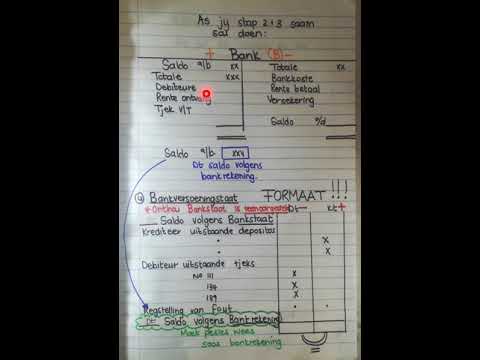 As jy stap 2+3 saam
sal doen:
+ Bank (B) -
Saldo a/b xx
Totale xx
Totale xxx
Bankkoste
Debiteure
Rente betaal
Rente ontvang
Versekering
Tjek V/T
Saldo o/d
Saldo a/b xxy
Dt saldo volgens
bankrekening.
④ Bankversoeningstaat FORMAAT!!!
* Onthou Bankstaat is Dt - Kt +
Saldo volgens Bankstaat
Krediteer uitstaande depositos
x
x
Debiteur uitstaande tjeks
No 111 x
134 x
189 x
Regstelling van Fout
Dt Saldo volgens Bankrekening
Moet presies wees
soos bankrekening.